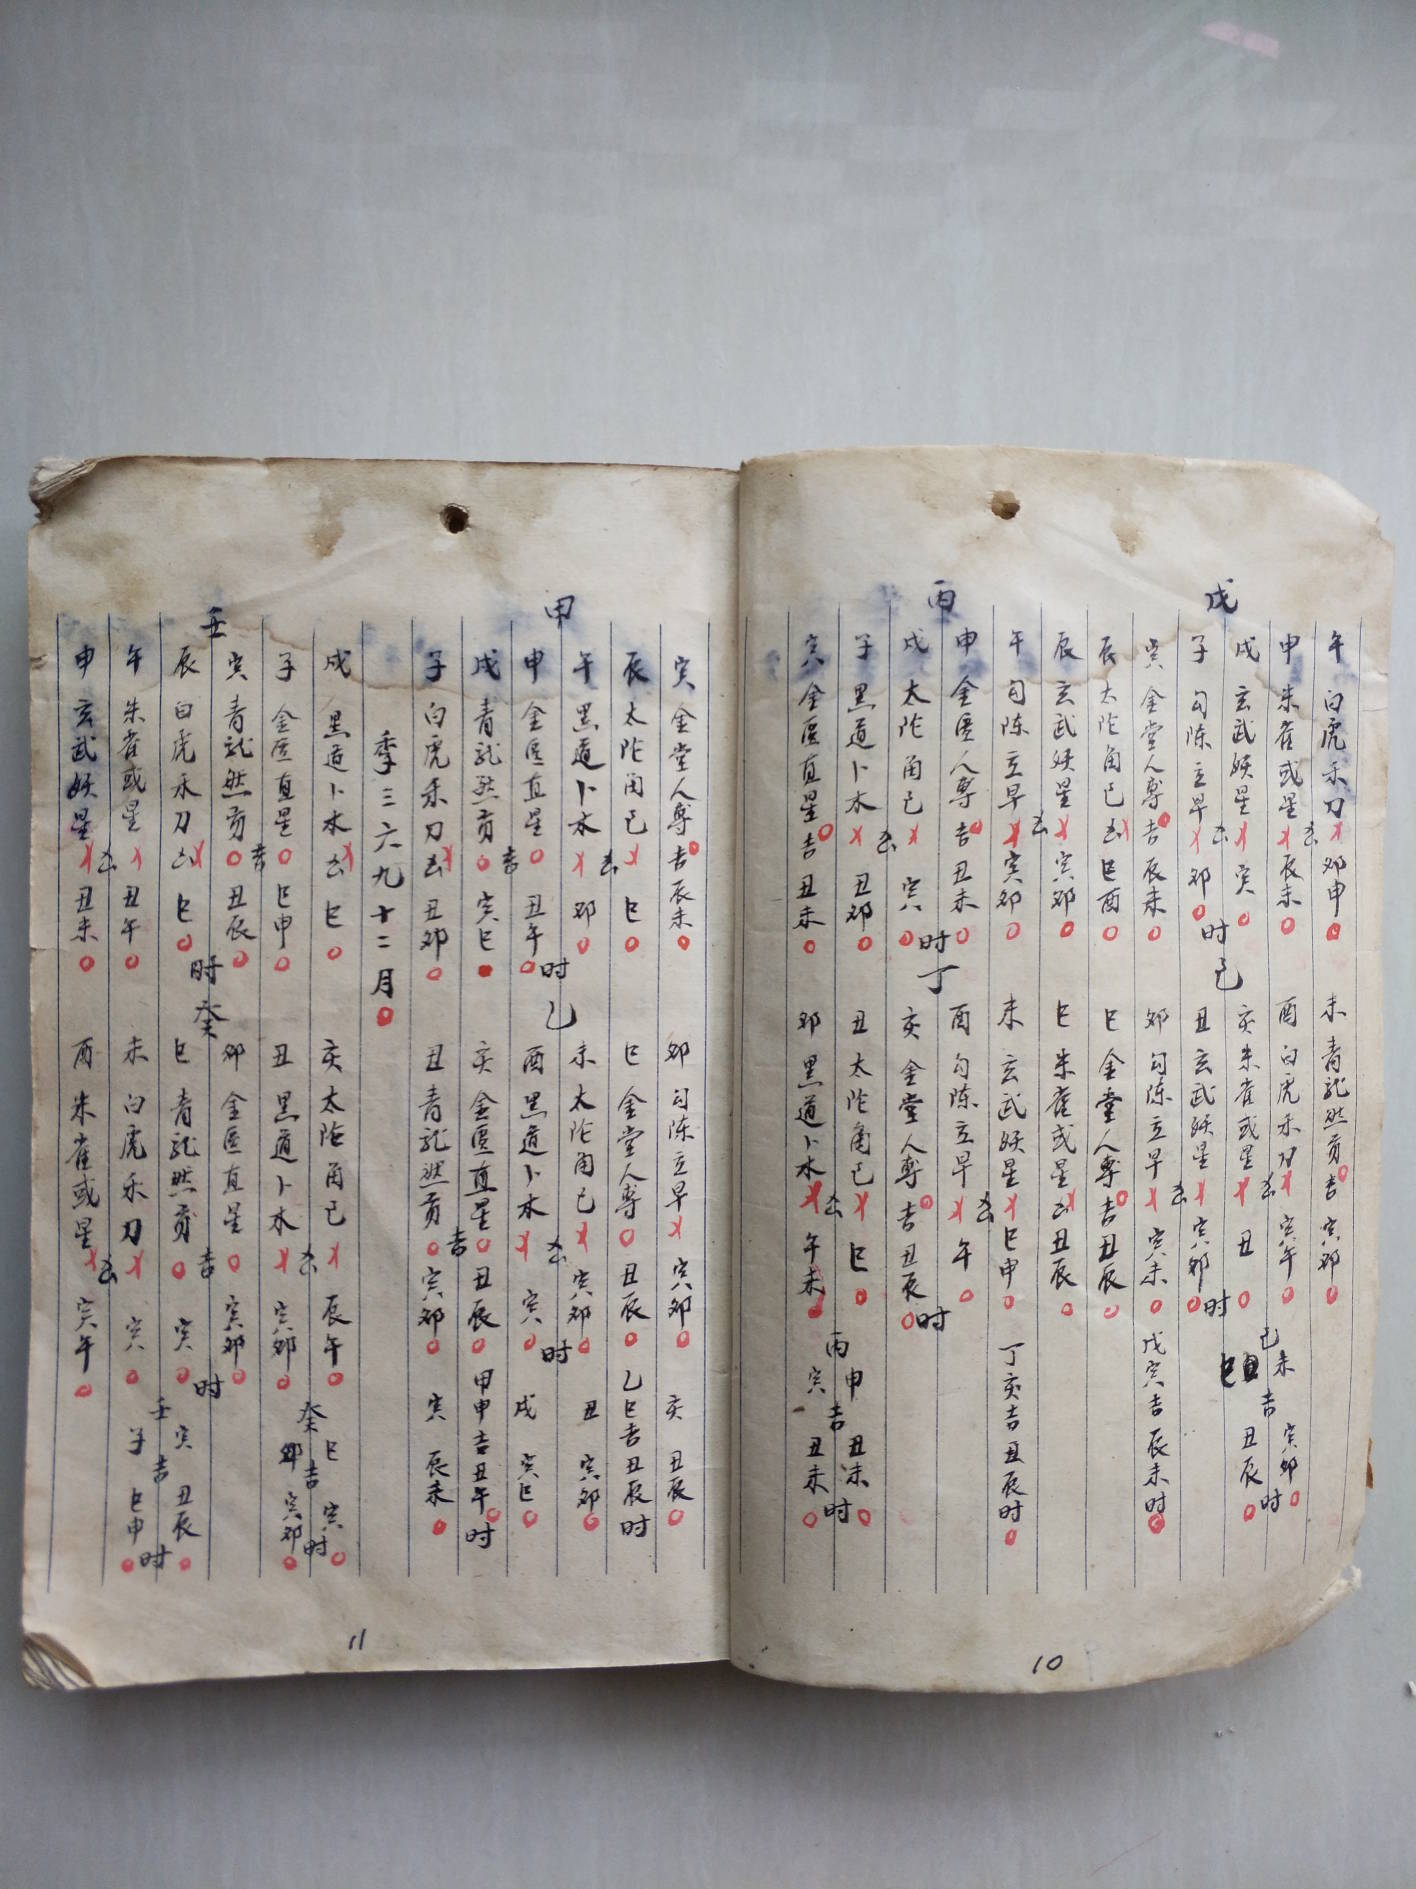 戊
午 白虎禾刀 卯申 未 青龙然贡 吉 寅卯
申 朱雀或星 凶 辰未 酉 白虎禾刀 寅午 未 寅卯
戌 玄武妖星 凶 寅 亥 朱雀或星 凶 丑 己 吉 丑辰 时
子 勾陈立早 卯 时 己 丑 玄武妖星 寅卯 时
寅 金堂人專 吉 辰未 卯 勾陈立早 凶 寅未 戊寅吉辰未时
辰 太陀角已 凶 巳酉 巳 金堂人專 吉 丑辰
辰 玄武妖星 寅卯 巳 朱雀或星 凶 丑辰
丙
午 勾陈立早 凶 寅卯 未 玄武妖星 巳申 丁亥吉丑辰时
申 金匤人專 吉 丑未 酉 勾陈立早 凶 午
戌 太陀角已 寅 时 丁 亥 金堂人專 吉 丑辰 时
子 黑道卜木 凶 丑卯 丑 太陀角已 巳 申 丑未
寅 金匤直星 吉 丑未 卯 黑道卜木 凶 午未 丙寅 吉 丑未 时
10
寅 金堂人專 吉 辰未 卯 勾陈立早 寅卯 亥 丑辰
辰 太陀角已 巳 巳 金堂人專 丑辰 乙巳吉丑辰时
甲
午 黑道卜木 凶 卯 未 太陀角已 寅卯 丑 寅卯
申 金匤直星 丑午 时 乙 酉 黑道卜木 凶 寅 时 戌 寅巳
戌 青龙然贡 吉 寅巳 亥 金匤直星 丑辰 甲申吉丑午时
子 白虎禾刀 凶 丑卯 丑 青龙然贡 吉 寅卯 寅 辰未
季三六九十二月
戌 黑道卜木 凶 巳 亥 太陀角已 辰午 巳 寅
子 金匤直星 巳申 丑 黑道卜木 凶 寅卯 癸卯 吉 寅卯 时
壬
寅 青龙然贡 吉 丑辰 卯 金匤直星 寅卯
辰 白虎禾刀 凶 巳 时 癸 巳 青龙然贡 吉 寅 时 寅 丑辰
午 朱雀或星 丑午 未 白虎禾刀 寅 壬子 吉 巳申 时
申 玄武妖星 凶 丑未 酉 朱雀或星 凶 寅午
11